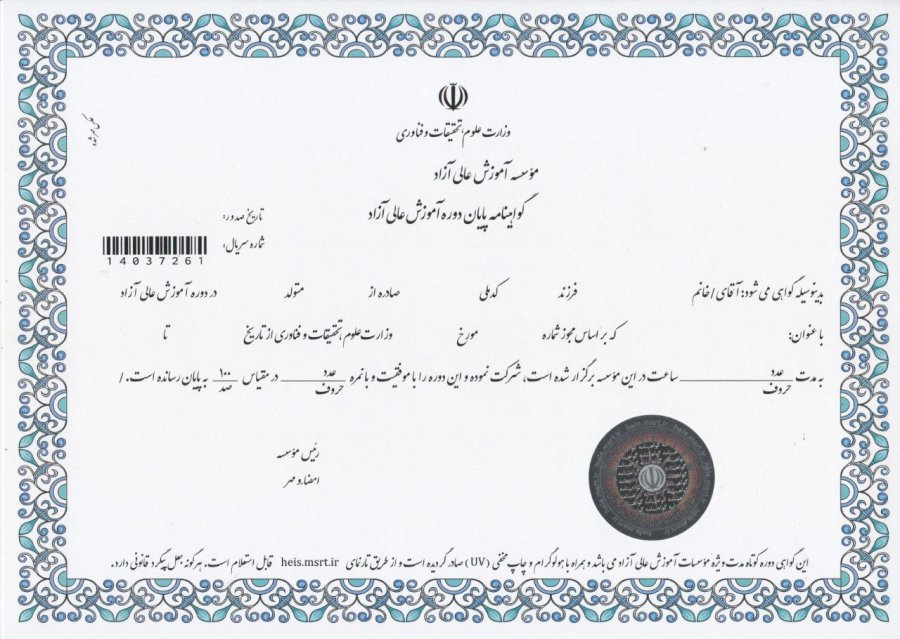 وزارت علوم، تحقیقات و فناوری
مؤسسه آموزش عالی آزاد
گواهینامه پایان دوره آموزش عالی آزاد
تاریخ صدور:
شماره سریال:
14037261
بدینوسیله گواهی می شود: آقای / خانم فرزند کدملی صادره از متولد در دوره آموزش عالی آزاد
با عنوان: که بر اساس مجوز شماره مورخ وزارت علوم، تحقیقات و فناوری از تاریخ تا
به مدت عدد حروف ساعت در این مؤسسه برگزار شده است، شرکت نموده و این دوره را با موفقیت و با نمره عدد حروف در مقیاس ۱۰۰ صد به پایان رسانده است. /
رئیس مؤسسه
امضا و مهر
heis.msrt.ir
این گواهی دوره کوتاه مدت ویژه مؤسسات آموزش عالی آزاد می باشد و همراه با هولوگرام و چاپ مخفی (UV) صادر گردیده است و از طریق تارنمای heis.msrt.ir قابل استعلام است. هرگونه جعل پیگرد قانونی دارد.